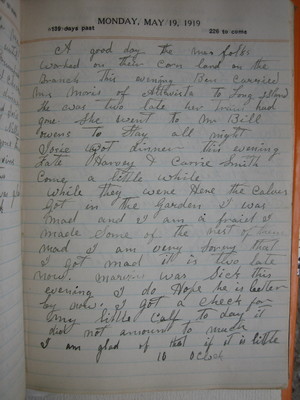 MONDAY, MAY 19, 1919
139-days past 226 to come
A good day the men folks
worked on their corn land on the
Branch this evening Ben Carried
Mrs Moris of Altavista to Long Island
He was two late her train had
gone She went to Mr Bill
owens to Stay all night
Josie got dinner this evening
Harvey & Carrie Smith
Come a little while
while they were Here the Calves
Got in the Garden I was
mad and I am a fraid I
made Some of the rest of them
mad I am very Sorry that
I got mad it is two late
now. was Sick this
evening I do Hope he is better
by now. I got a check for
my little Calf to day it
did not amount to much
I am glad of that if it is little
10 oclock